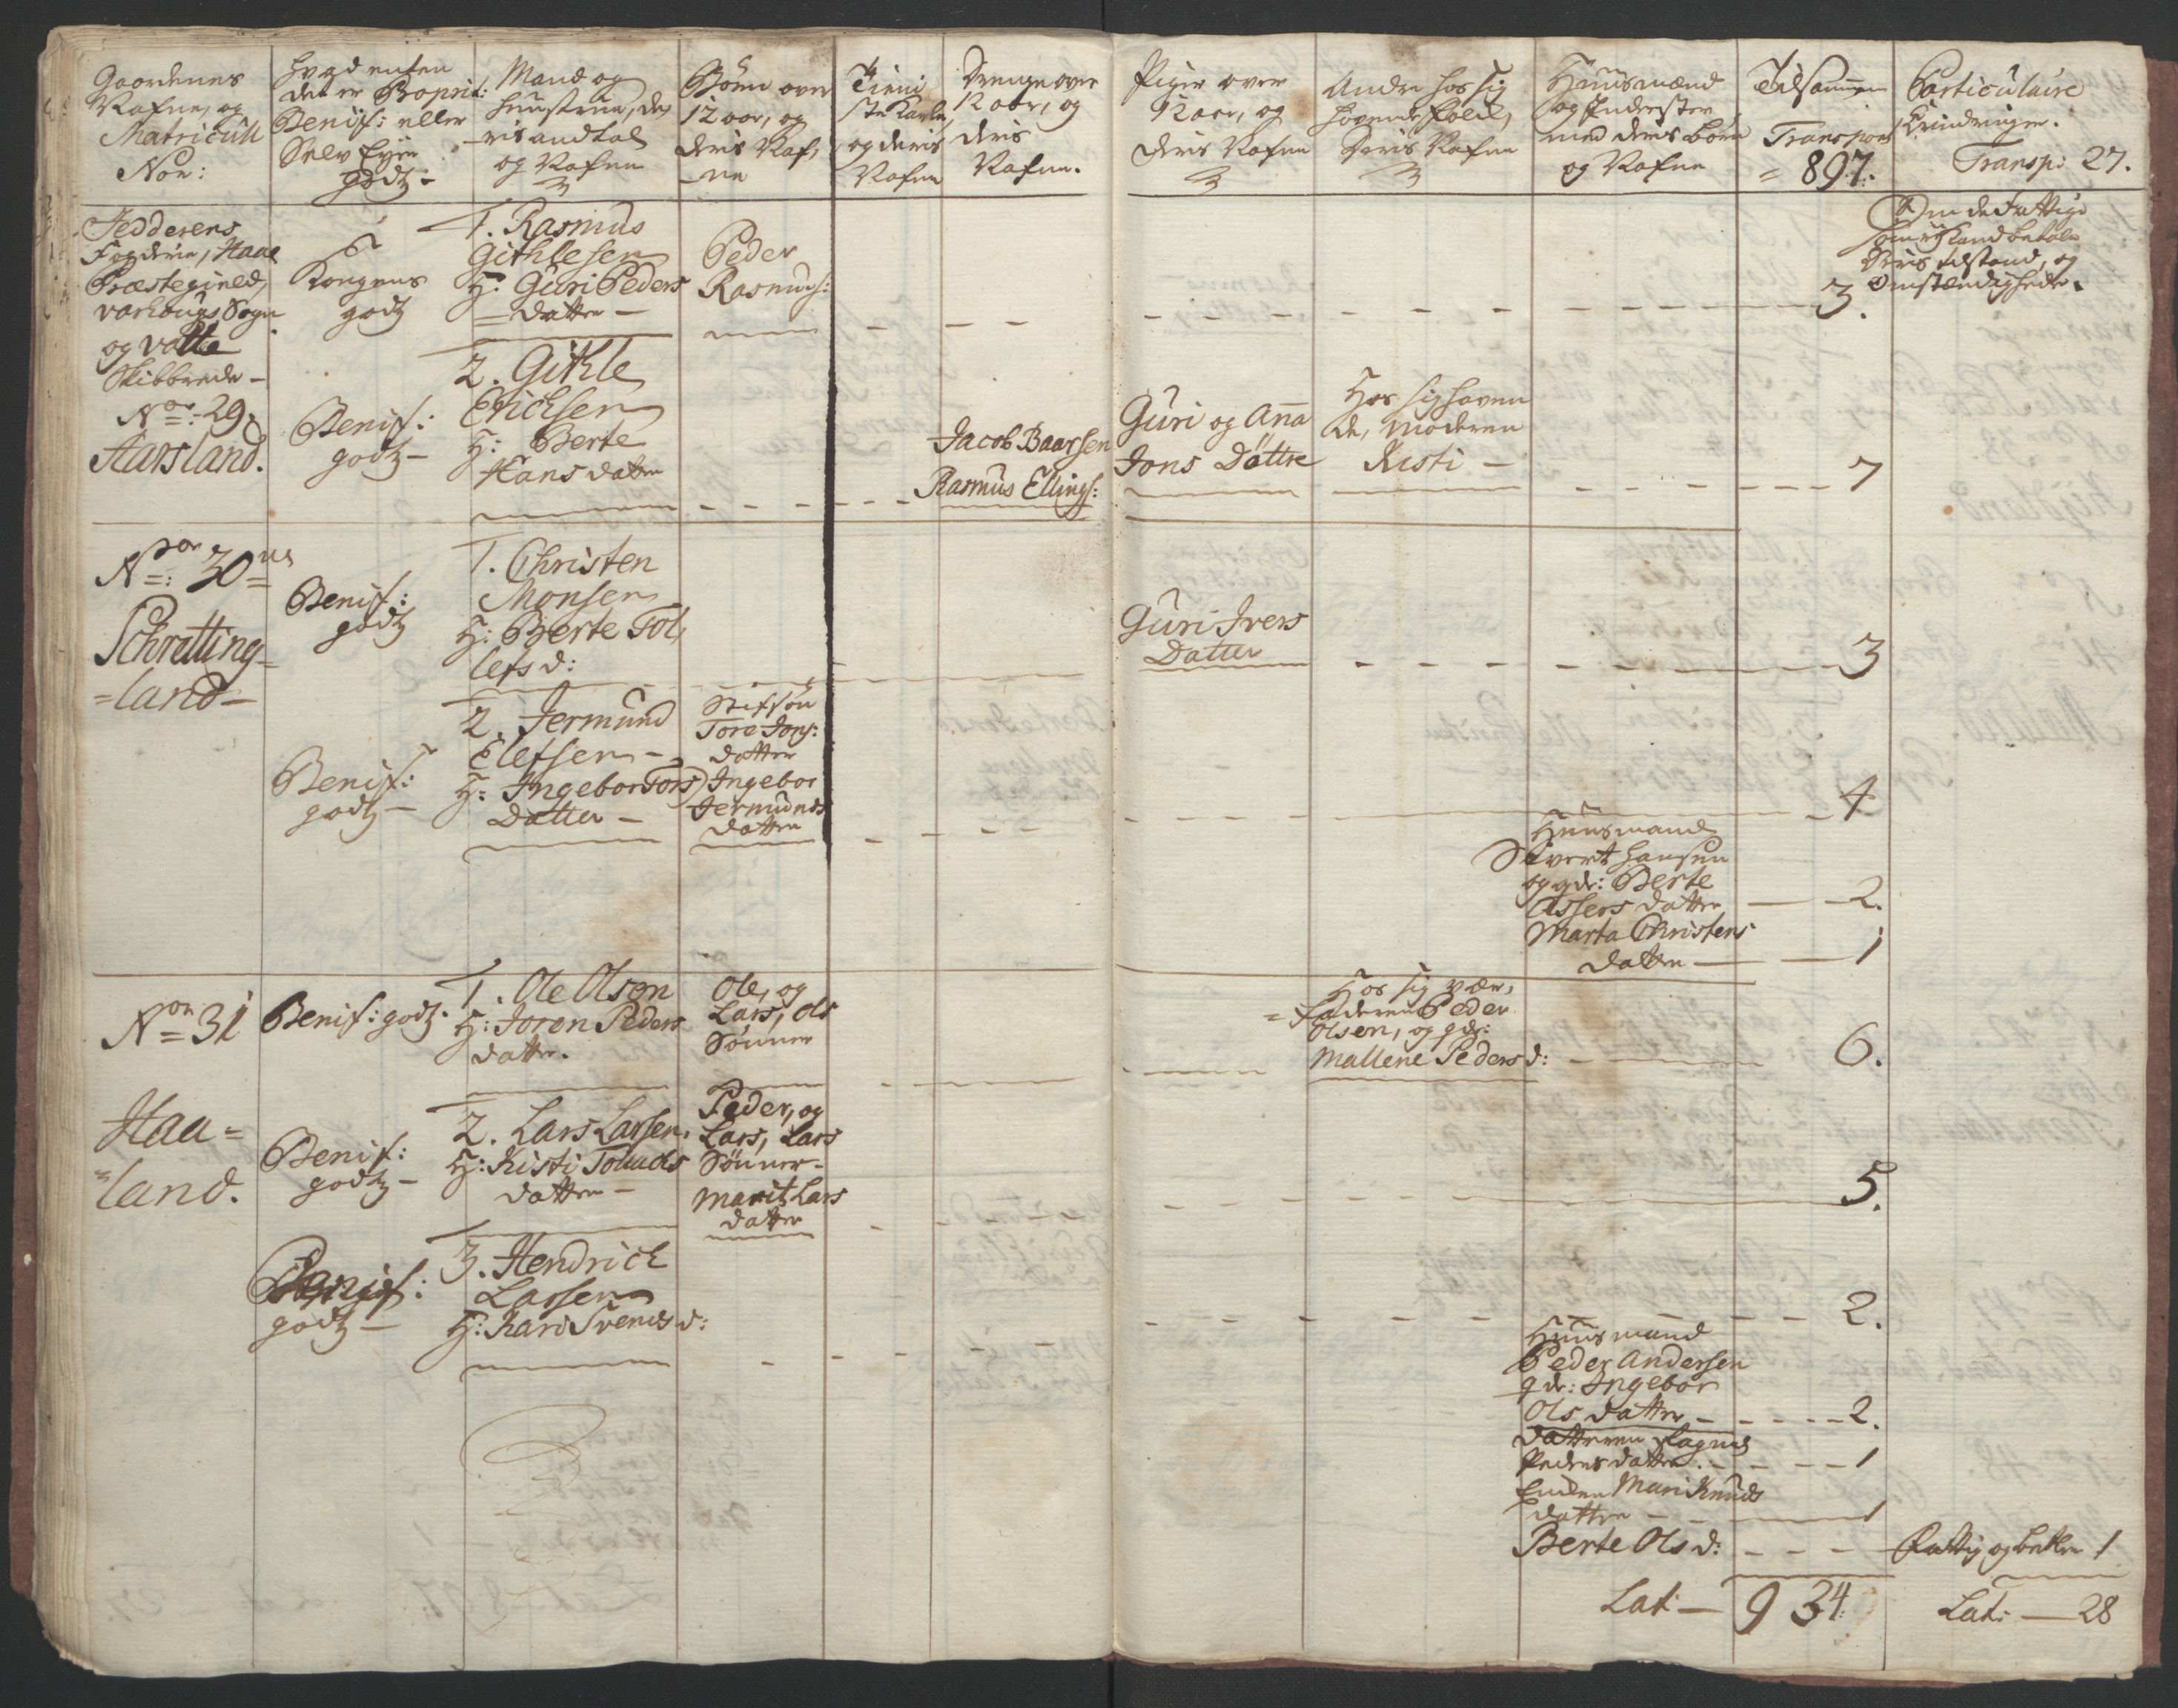 Gaardenes
Nafne, og
Matricüll
Noe:
Hvad enten
det er Proprit:
Benif: eller
Selv Eyer
godz -
Mand og
Huustrue, de,
ris andtal
og Nafne
Børn over
12 aar, og
deris Naf,
ne
Tieni
ste Karle,
og deris
Nafne
Drenge over
12 aar, og
deris
Nafne.
Piger over
12 aar, og
deris Nafne
Andre hos sig
hævende folck,
deris Nafne
Huusmænd
og Inderster
med deris børn
og Nafne
Tilsammen
Transport
= 897.
Particulaire
Erindringer.
Transp: 27.
Jedderens
Fogderie, Haae
Præstegield,
Varhougs Sogn
og Valle
Skibbrede -
Noe: 29.
Aarsland.
Kongens
godz
1. Rasmus
Githlesen
H: Guri Peders
= datter -
Peder
Rasmus:
3.
Om de Fattige
som ej kand betale
deris tilstand, og
Omstændigheder.
Benif:
godz -
2. Githle
Erichsen
H: Berte
Hans datter
Jacob Baarsen
Rasmus Ellings:
Guri og Anna
Jons Døttre
Hos sig haven
de, Moderen
Kisti -
7
Noe: 30
Schretting=
=land -
Benif:
godz
1. Christen
Monsen
H: Berte Tol,
lefs d:
Guri Ivers
Datter
3
Benif:
godz -
2. Jermund
Elefsen -
H: Ingebor Tors
Datter -
Stifsøn
Tore Jons:
datter
Ingebor
Jermunds
datter
4
Huusmand
Sivert Hansen
og qde: Berte
Assers datter - 2.
Marta Christens
datter - 1
Noe 31
Haa=
=land.
Benif: godz.
1. Ole Olson
H: Joron Peders
datter.
Ole, og
Lars, Ols
Sønner
Hos sig vær,
= Faderen Peder
Olsen, og qde:
Mallene Peders d:
6.
Benif:
godz -
2. Lars Larsen.
H: Kisti Tollachs
datter -
Peder, og
Lars, Lars
Sønner -
Marit Lars
datter
5.
Benif:
godz -
3. Hendrich
Larsen
H: Kari Svends d:
2.
Huusmand
Peder Andersen
qde: Ingebor
Ols datter - 2.
datteren
Peders datter - 1
Enken Mari Knuds
datter - 1
Berte Ols d:
Fattig og betler 1
Lat: - 934
Lat: - 28